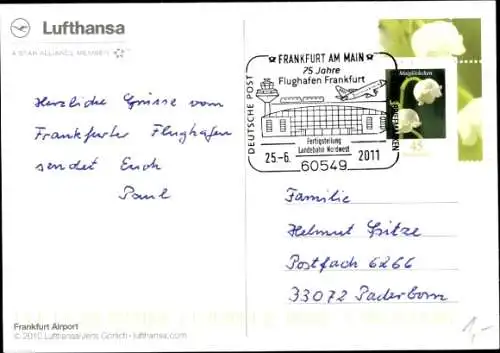 Lufthansa
A STAR ALLIANCE MEMBER
Herzliche Grüsse vom
Frankfurter Flughafen
sendet Euch
Paul
Frankfurt Airport
© 2010 Lufthansa/Jens Görlich · lufthansa.com
FRANKFURT AM MAIN
75 Jahre
Flughafen Frankfurt
DEUTSCHE POST
Fertigstellung
Landebahn Nordwest
25.-6. 2011
60549
Maiglöckchen
45
Familie
Helmut Spitze
Postfach 6266
33072 Paderborn
1,-